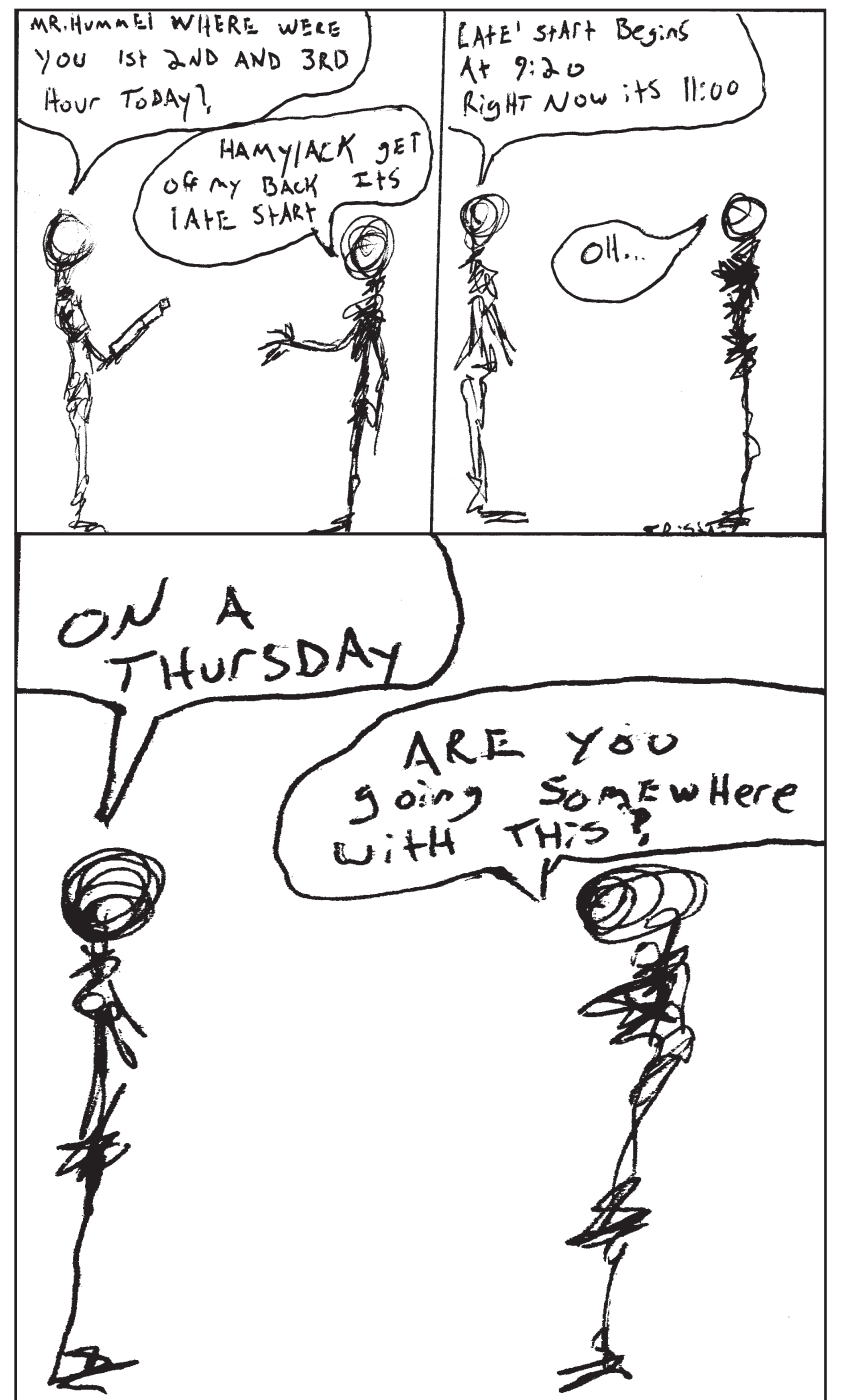 MR. HummEl WHERE WERE
YOU 1st 2ND AND 3RD
Hour TODAY?
HAMYJACK gET
off my BACK ITS
lATE START
LATE' StArt Begins
At 9:20
RigHT Now itS 11:00
OH...
ON A
THurSDAY
ARE YOU
going SomEwHere
witH THiS?